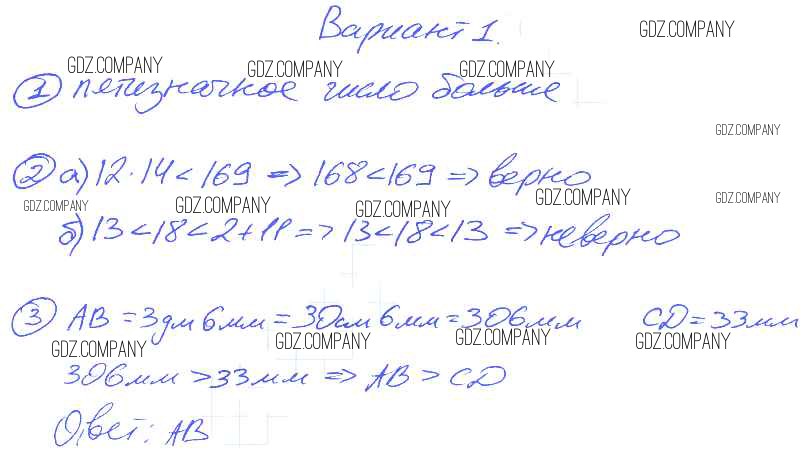 Вариант 1.
GDZ.COMPANY
GDZ.COMPANY GDZ.COMPANY GDZ.COMPANY
1 пятизначное число больше
GDZ.COMPANY
2 а) 12·14<169 => 168<169 => верно
GDZ.COMPANY GDZ.COMPANY GDZ.COMPANY GDZ.COMPANY GDZ.COMPANY
б) 13<18<2+11 => 13<18<13 => неверно
3 AB=3дм6мм=30см6мм=306мм CD=33мм
GDZ.COMPANY GDZ.COMPANY GDZ.COMPANY GDZ.COMPANY
306мм>33мм => AB>CD
Ответ: AB